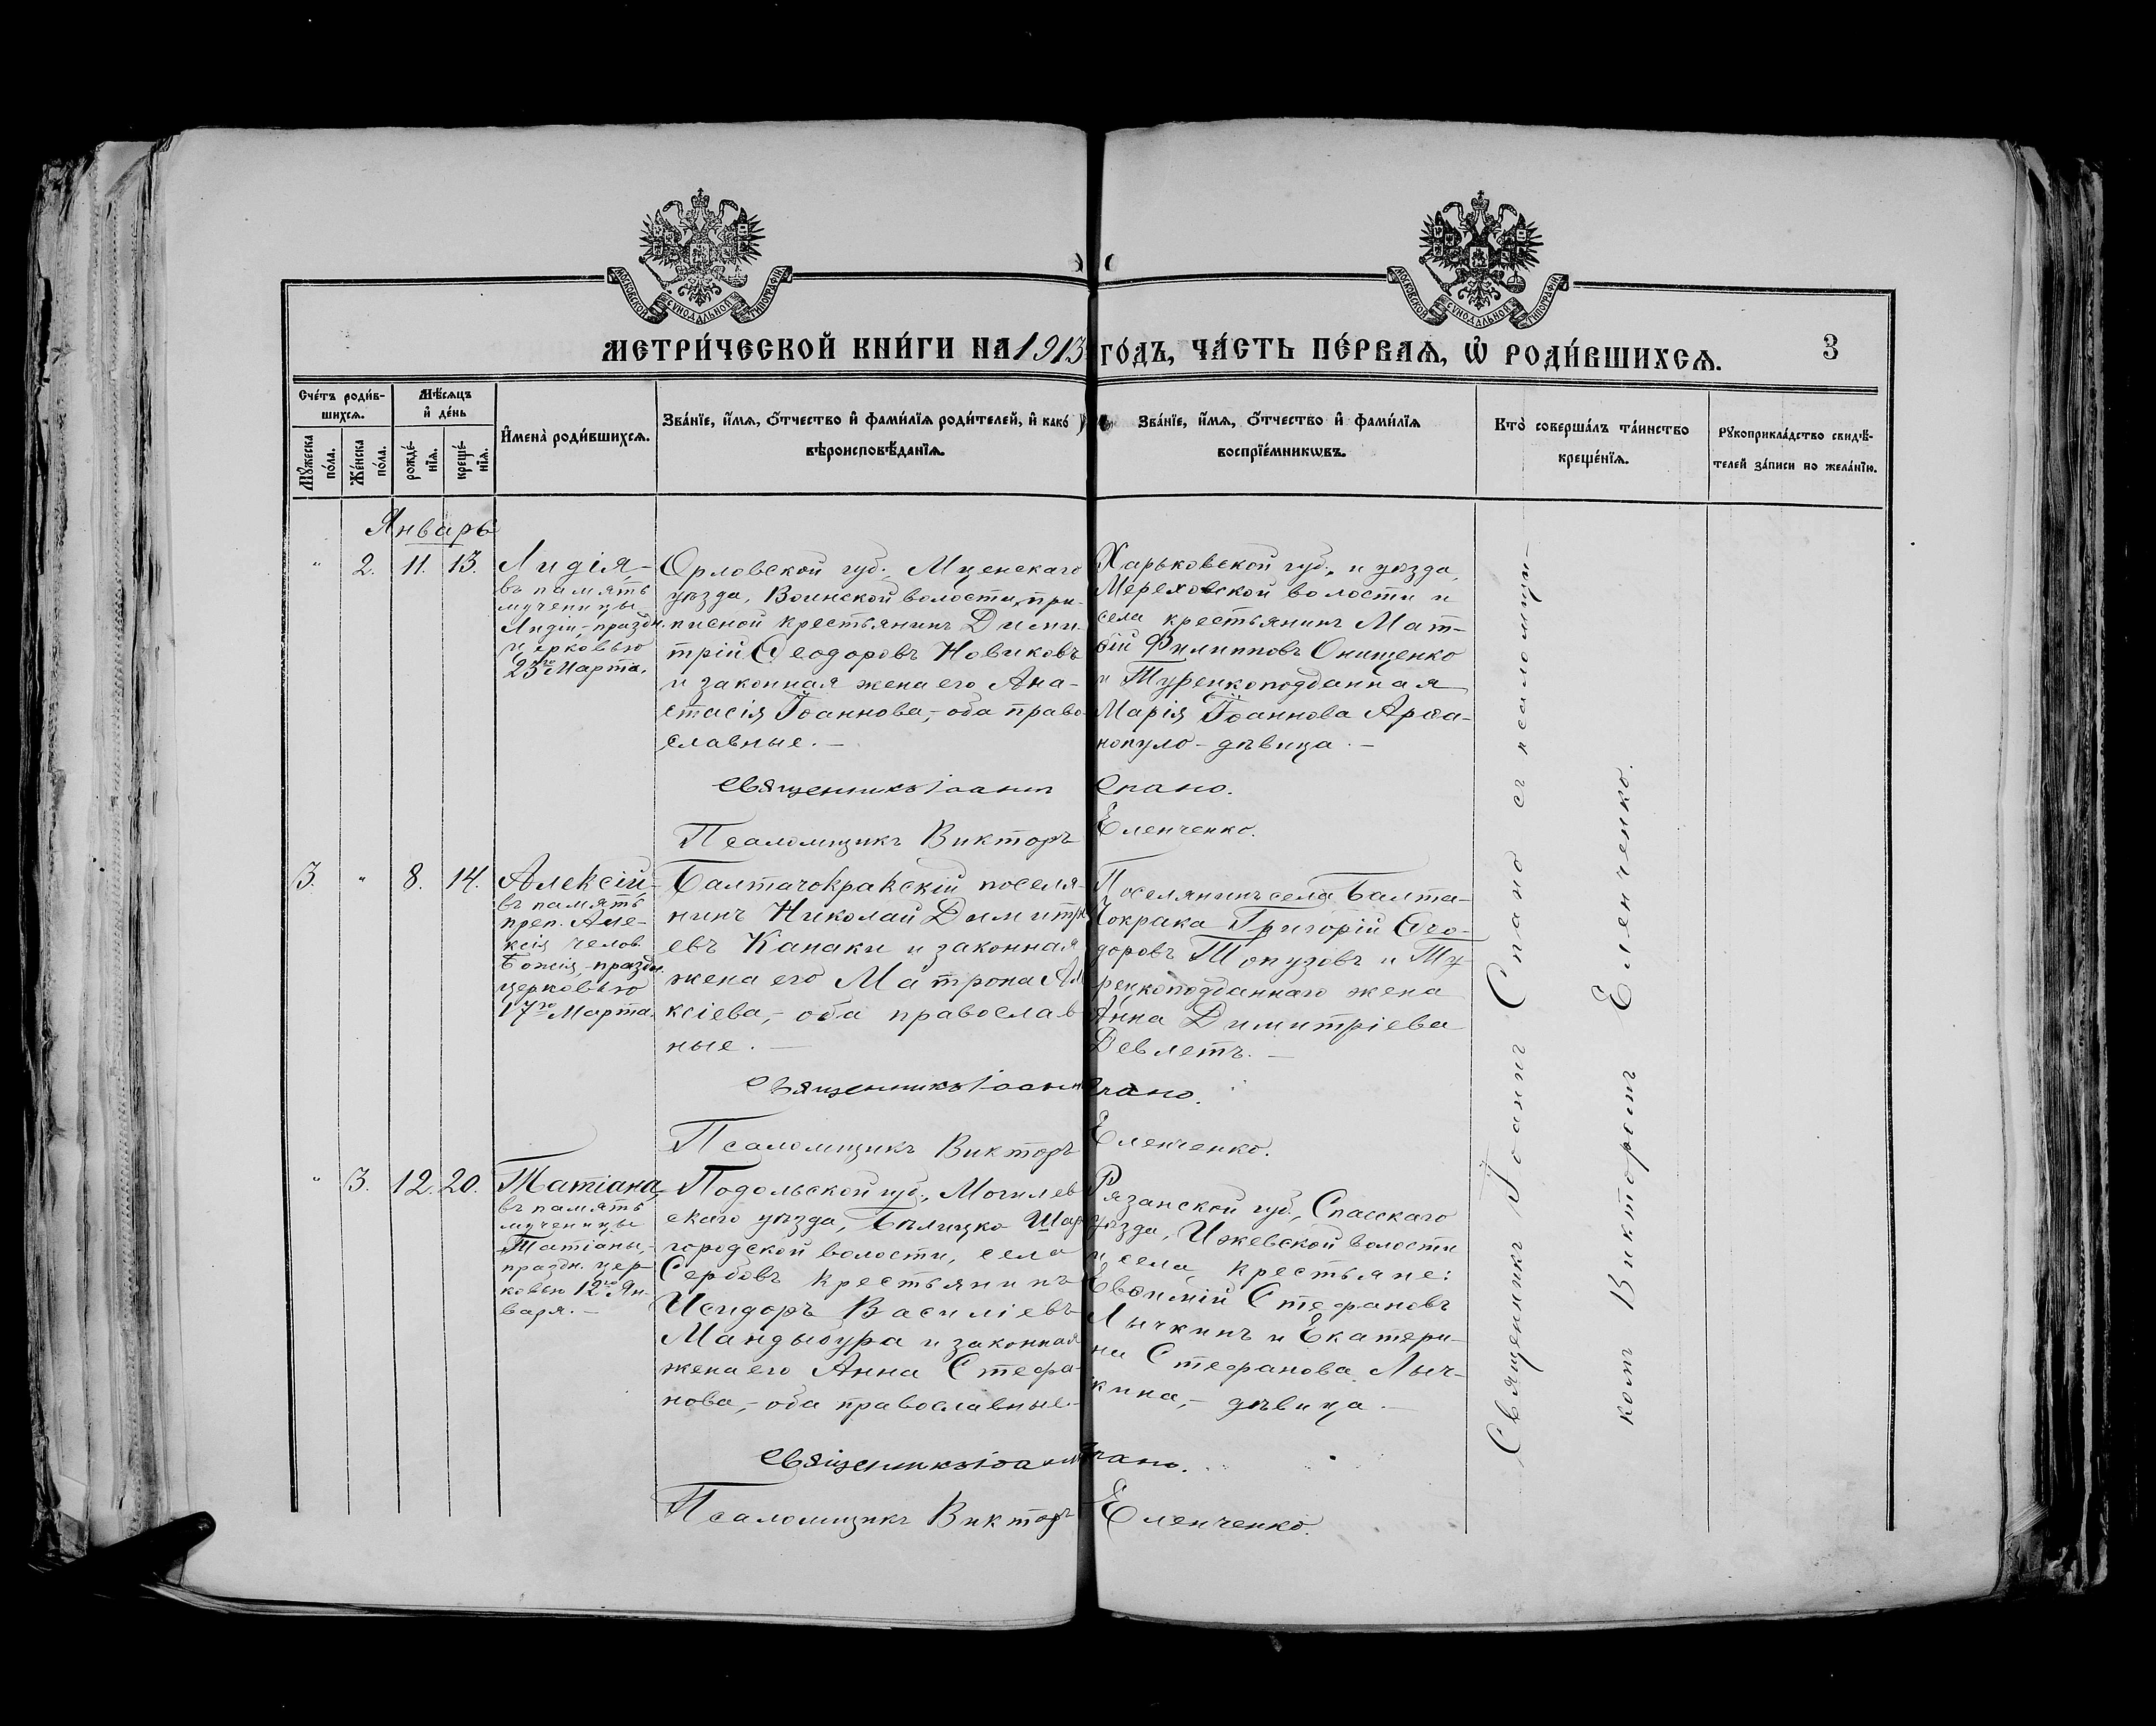 МОСКОВСКОЙ СѴНОДАЛЬНОЙ ТИПОГРАФІИ
МОСКОВСКОЙ СѴНОДАЛЬНОЙ ТИПОГРАФІИ
МЕТРИ́ЧЕСКОЙ КНИ́ГИ НА 1913 ГО́ДЪ, ЧА́СТЬ ПЕ́РВАѦ, Ѡ҆ РОДИ́ВШИХСѦ.
3
Сче́тъ роди́в-
шихсѧ.
Мꙋ́жеска
по́ла.
Же́нска
по́ла.
Мѣ́сѧцъ
и҆ де́нь
рожде́-
нїѧ.
креще́-
нїѧ.
И҆мена̀ роди́вшихсѧ.
Зва́нїе, и҆́мѧ, ѻ҆́тчество и҆ фами́лїѧ роди́телей, и҆ како́
вѣроисповѣ́данїѧ.
Зва́нїе, и҆́мѧ, ѻ҆́тчество и҆ фами́лїѧ
воспрїе́мникѡвъ.
Кто̀ соверша́лъ та́инство
креще́нїѧ.
Рꙋкоприкла́дство свидѣ́-
телей за́писи по жела́нїю.
Январь
" 2. 11. 13.
Лидія,-
въ память
мученицы
Лидіи,-праздн.
церковью
23го Марта.
Орловской губ., Мценскаго
уѣзда, Воинской волости, при-
писной крестьянинъ Дими-
трій Ѳеодоровъ Новиковъ
и законная жена его Ана-
стасія Іоаннова,- оба право-
славные.-
Харьковской губ. и уѣзда,
Мереховской волости и
села крестьянинъ Мат-
ѳій Филипповъ Онищенко
и Турецкоподданная
Марія Іоаннова Арѳа-
нопуло-дѣвица.-
Священникъ Іоаннъ Спано.
Псаломщикъ Викторъ Еленченко.
3. " 8. 14.
Алексій-
въ память
преп. Але-
ксія челов.
Божія,-праздн.
церковью
17го Марта.
Балтачокракскій поселя-
нинъ Николай Димитрі
евъ Канаки и законная
жена его Матрона Але
ксіева,- оба православ-
ные.-
Поселянинъ села Балта-
Чокрака Григорій Ѳео-
доровъ Топузовъ и Ту-
рецкоподданнаго жена
Анна Димитріева
Девлетъ.-
Священникъ Іоаннъ Спано.
Псаломщикъ Викторъ Еленченко.
" 3. 12. 20.
Татіана,-
въ память
мученицы
Татіаны,-
праздн. цер-
ковью 12го Ян-
варя.-
Подольской губ., Могилев
скаго уѣзда, Бѣлицко Шар
городской волости, села
Сербовъ крестьянинъ
Исидоръ Василіевъ
Мандыбура и законная
жена его Анна Стефа-
нова,- оба православные.-
Рязанской губ., Спасскаго
уѣзда, Ижевской волости
и села крестьяне:
Евѳимій Стефановъ
Лычкинъ и Екатери-
на Стефанова Лыч-
кина,- дѣвица.-
Священникъ Іоаннъ Спано.
Псаломщикъ Викторъ Еленченко.
Священникъ Іоаннъ Спано съ псаломщи-
комъ Викторомъ Еленченко.